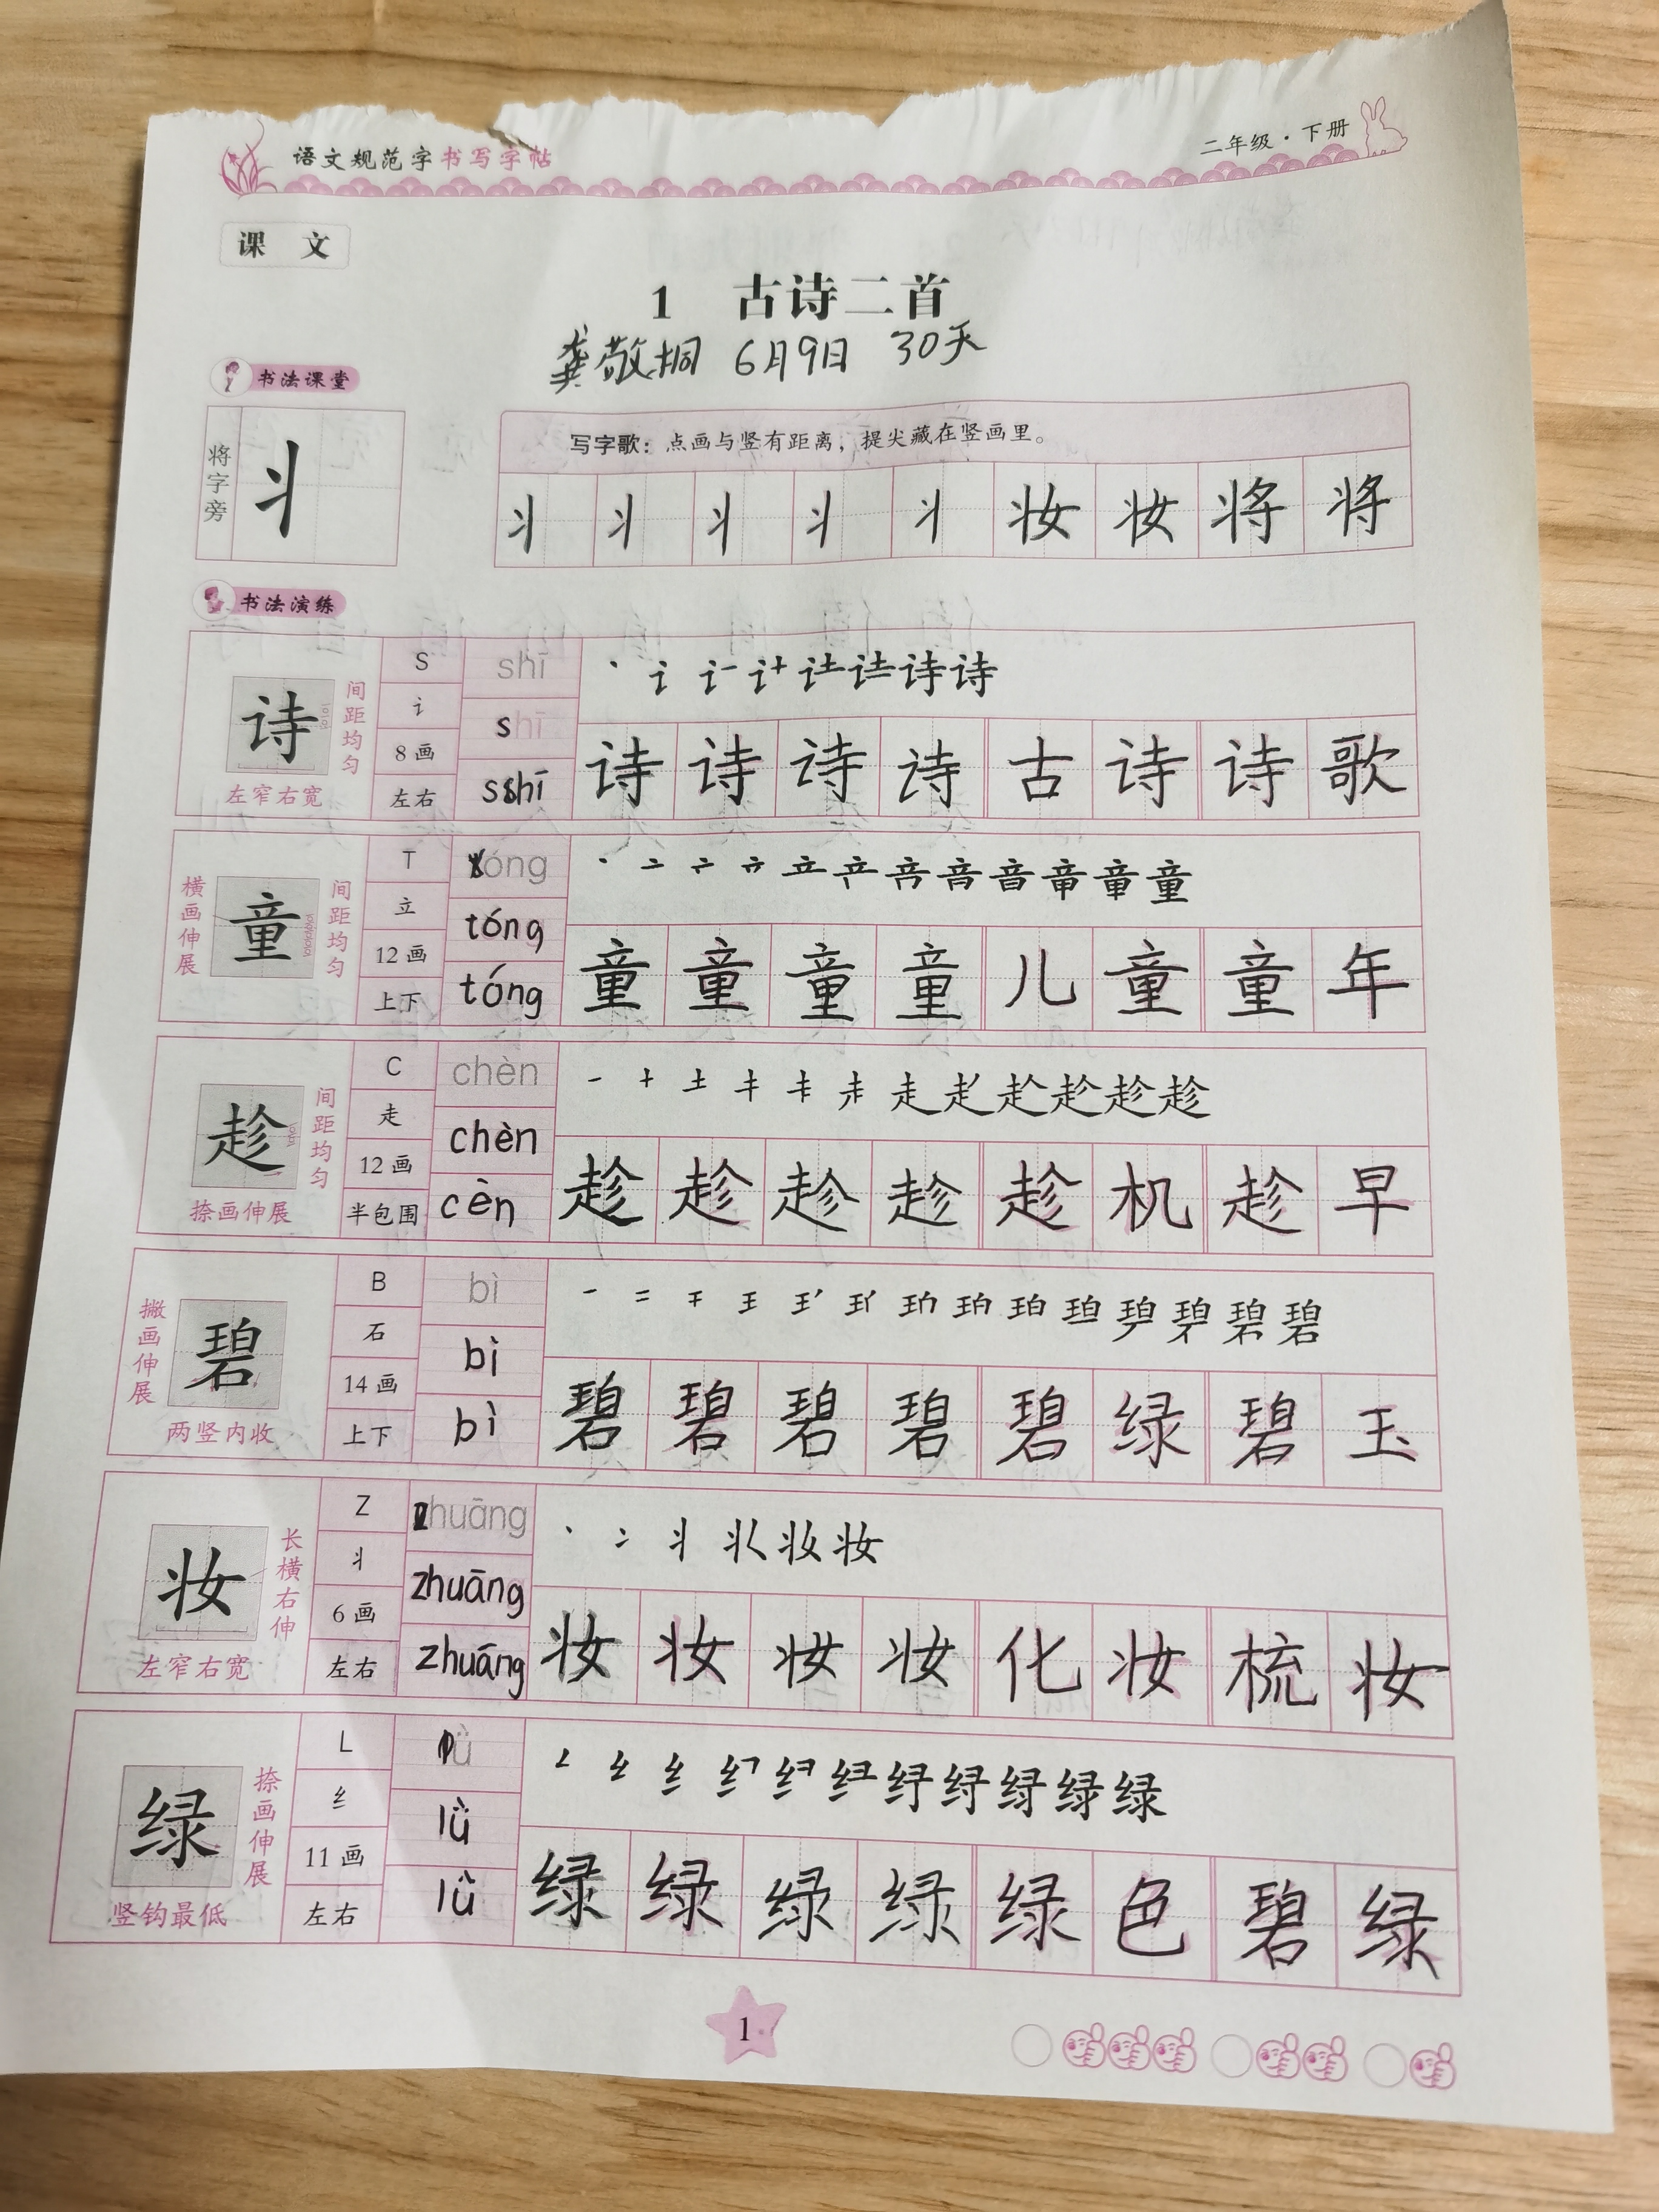 语文规范字书写字帖
二年级·下册
课 文
1 古诗二首
龚敬桐 6月9日 30天
书法课堂
将字旁
丬
写字歌：点画与竖有距离，提尖藏在竖画里。
丬 丬 丬 丬 丬 妆 妆 将 将
书法演练
诗
间距均匀
左窄右宽
S
讠
8画
左右
shī
shī
sshī
诗 诗 诗 诗 古 诗 诗 歌
横画伸展
童
间距均匀
T
立
12画
上下
tóng
tóng
tóng
童 童 童 童 儿 童 童 年
趁
间距均匀
捺画伸展
C
走
12画
半包围
chèn
chèn
cèn
趁 趁 趁 趁 趁 机 趁 早
撇画伸展
碧
两竖内收
B
石
14画
上下
bì
bì
bì
碧 碧 碧 碧 碧 绿 碧 玉
妆
长横右伸
左窄右宽
Z
丬
6画
左右
zhuāng
zhuāng
zhuāng
妆 妆 妆 妆 化 妆 梳 妆
绿
捺画伸展
竖钩最低
L
纟
11画
左右
lǜ
lǜ
lǜ
绿 绿 绿 绿 绿 色 碧 绿
1